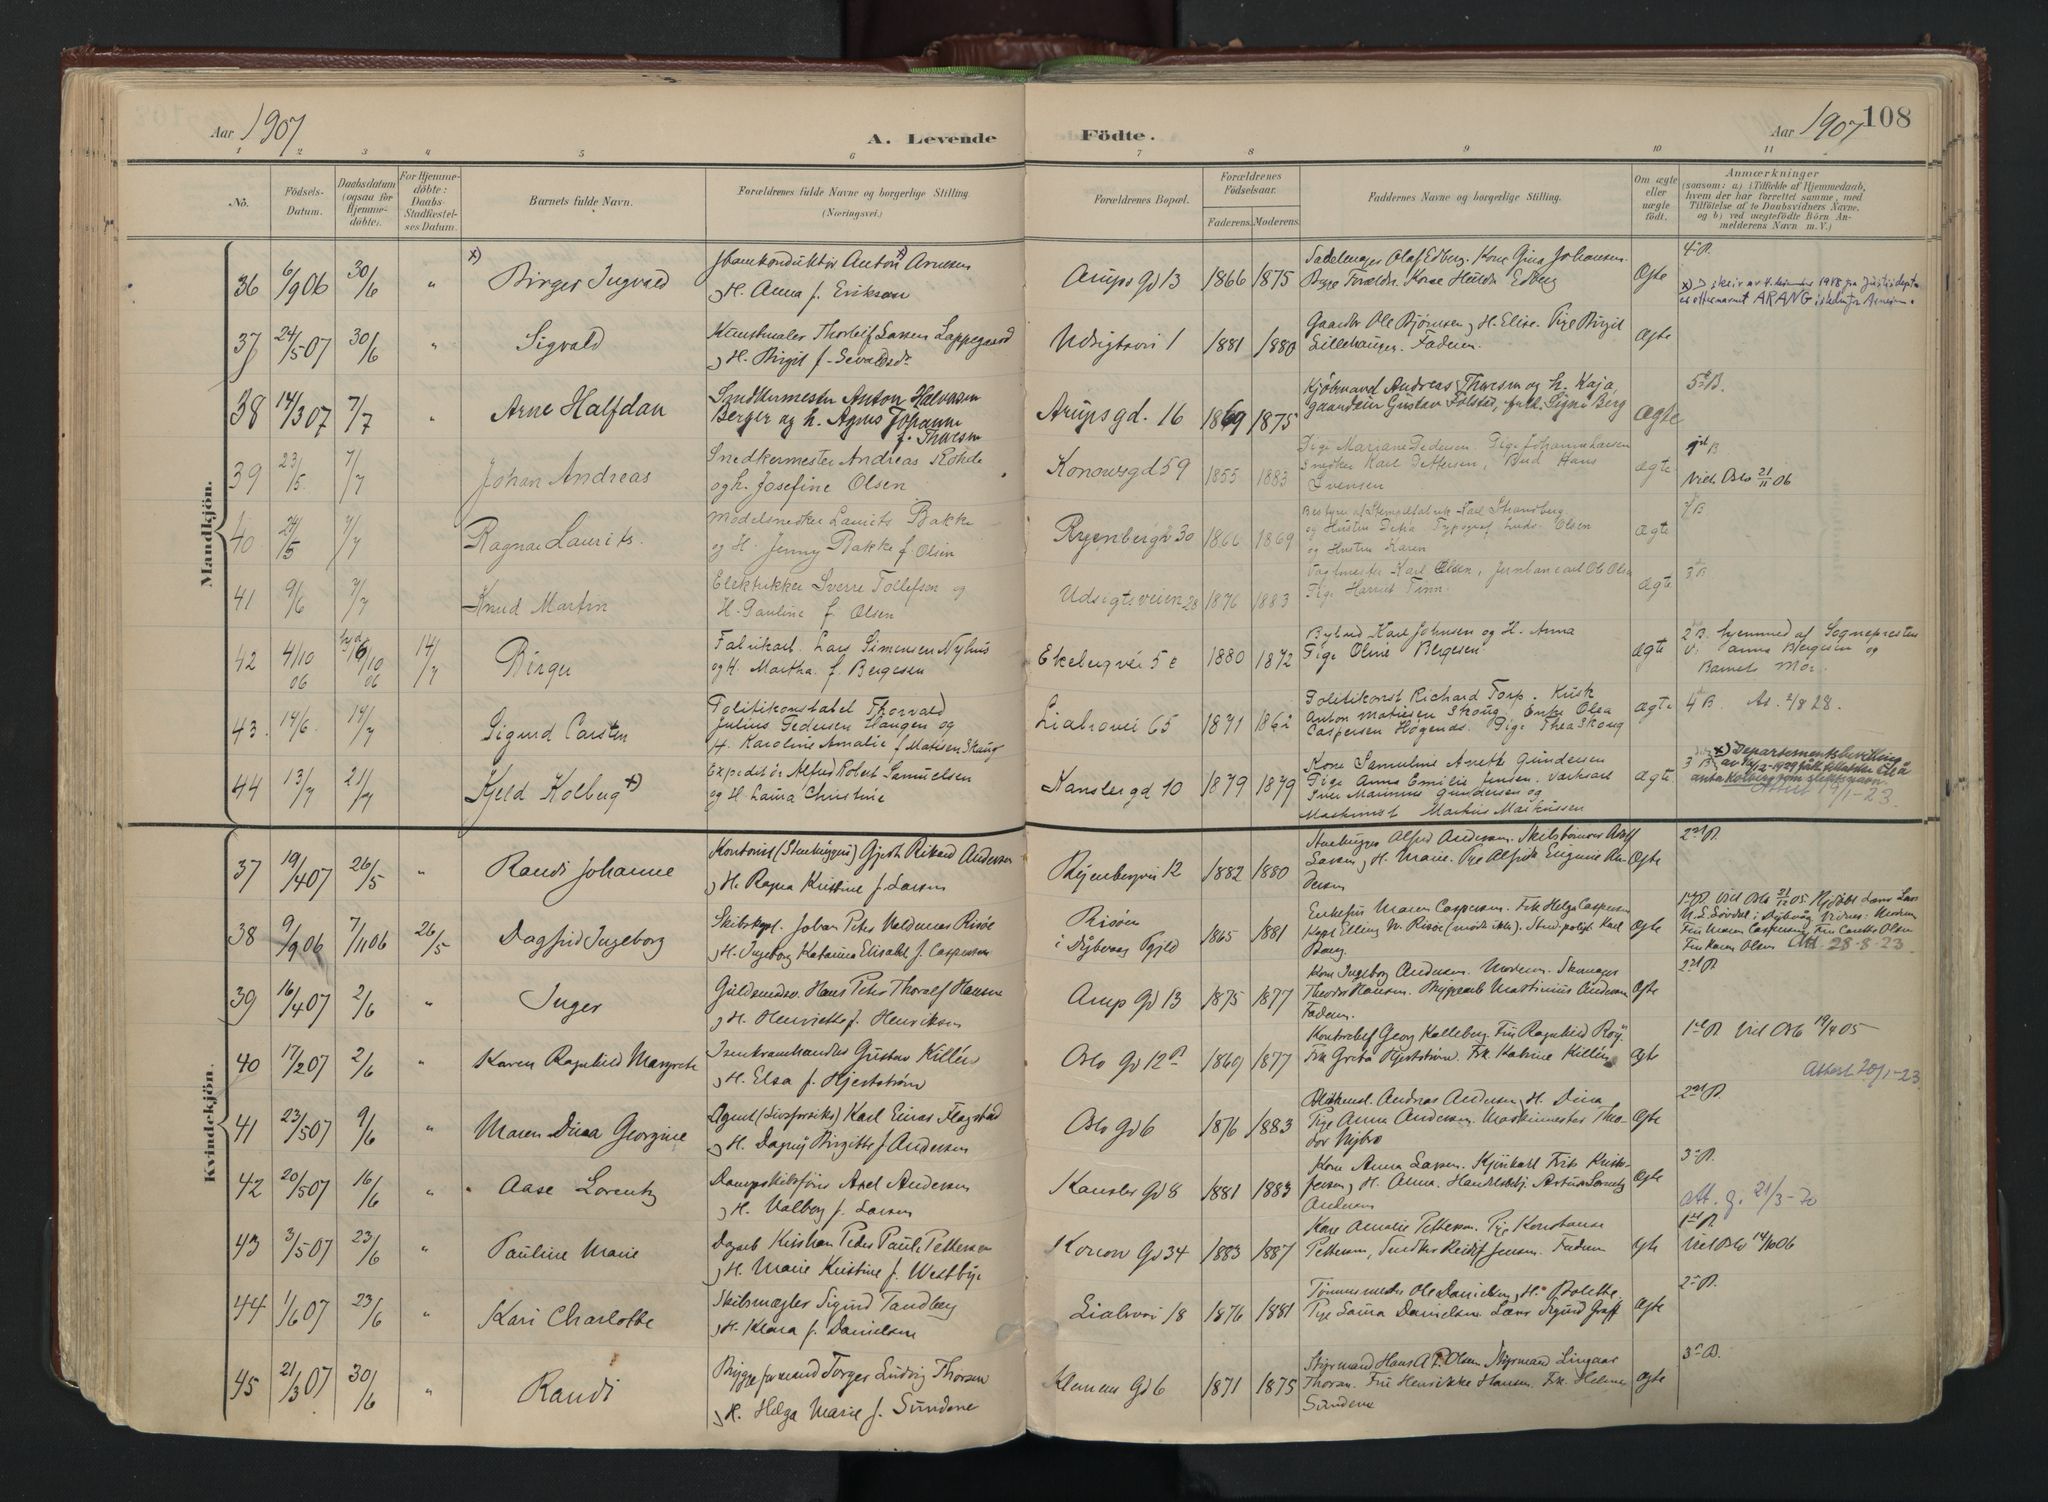 Aar 1907
A. Levende Födte.
Aar 1907
108
1 2 3 4 5 6 7 8 9 10 11
No.
Födsels-
Datum.
Daabsdatum
(ogsaa for
Hjemme-
døbte).
For Hjemme-
døbte:
Daabs-
Stadfæstel-
ses Datum.
Barnets fulde Navn.
Forældrenes fulde Navne og borgerlige Stilling.
(Næringsvei.)
Forældrenes Bopæl.
Forældrenes
Födselsaar.
Faderens. Moderens.
Faddernes Navne og borgerlige Stilling.
Om ægte
eller
uægte
födt.
Anmærkninger
(saasom: a) i Tilfælde af Hjemmedaab,
hvem der har forrettet samme, med
Tilföielse af to Daabsvidners Navne,
og b) ved uægtefödte Börn An-
melderens Navn m. V.)
Mandkjön.
36 6/9 06 30/6 " x) Birger Ingvald
Anton x) Arnesen
og H. Anna f. Eriksen
Arups Gd 13 1866 1875
Olaf Edberg. Kone Gina Johansen.
Kone Hulda Edberg
Ægte
4de B.
ARANG istedenfor Arnesen.
37 24/5 07 30/6 " Sigvald
Kunstmaler Thorleif Larsen Lappegaard
og H. Birgit f. Sevaldsdr
Udsigtsvei 1 1881 1880
Gaardbr Ole Bjørnsen og H. Elise. Pige Birgit
Lillehaugen. Faderen.
Ægte
38 14/3 07 7/7 " Arne Halfdan
Snedkermester Anton Halvorsen
Berger og h. Agnes Johanne
f. Thoresen
Arupsgd. 16 1869 1875
Kjøbmand Andreas Thoresen og h. Kaja,
Gustav Folstad, frk. Signe Berg
ægte
5te B.
39 23/5 7/7 Johan Andreas
Snedkermester Andreas Rohde
og h. Josefine Olsen
Konowsgd 59 1855 1883
Pige Mariane Pedersen. Pige Johanne Larsen
Snedker Karl Pettersen, Bud Hans
Svensen
ægte
1st B
Viet Oslo 21/11 06
40 24/5 7/7 Ragnar Laurits.
Modelsnedker Laurits Bakke
og H. Jenny Bakke f. Olsen
Ryenbergv 30 1866 1869
Bestyrer af Stempelfabrik Karl Strandberg
og Hustru Petra Typograf Ludv. Olsen
og Hustru Karen
ægte
7de B
41 9/6 7/7 Knud Martin
Elektrikker Sverre Tollefsen og
H. Pauline f. Olsen
Udsigtsveien 28 1876 1883
Vagtmester Karl Olsen, Jernbanearb Ole Olsen
Pige Harriet Finn.
ægte
3die B
42 4/10 06 hjd 16/10 06 14/7 Birger
Fabrikarb. Lars Simensen Nyhus
og H. Martha f. Bergesen
Ekebergvei 5c 1880 1872
Bybud Karl Johnsen og H. Anna
Pige Olive Bergesen
ægte
2d B. hjemmed af Sognepresten
V: Anna Bergesen og
Barnets Mor.
43 14/6 14/7 Sigurd Carsten
Politikonstabel Thorvald
Julius Pedersen Haugen og
H. Karoline Amalie f. Matisen Skaug
Liabrovei 65 1871 1862
Politikonst Richard Torp. Kusk
Anton Matisen Skoug, Enke Olea
Caspersen Høgends. Pige Thea Skoug
ægte
4d B. At. 2/8 28.
44 13/7 21/7 Kjeld Kolberg x)
Expeditör Alfred Robert Samuelsen
og H. Laura Christine
Kanslergd 10 1879 1879
Kone Samuline Anette Gundersen
Pige Anna Emilie Jensen. Værksarb
Iver Marinius Gundersen og
Maskinist Markus Markussen
ægte
3 B. x) Departementsbevilling
av 14/2-1929
Kolberg som slektsnavn
Attest 19/1-23.
Kvindekjön.
37 19/4 07 26/5 " Randi Johanne
Kontorist (Stenhuggeri) Gjert Rikard Andersen
og H. Ragna Kristine f. Larsen
Ryenbergvei 12 1882 1880
Stenhugger Alfred Andersen. Adolf
Larsen og H. Marie. Pige Alfride Eugenie An-
dersen
Ægte
2det B.
38 9/9 06 7/11 06 26/5 Dagfrid Ingeborg
Skibskapt. Johan Peter Valdemar Risøe
og H. Ingeborg Katarina Elisabet f. Caspersen
Risøen
i Dybvaag Pgjld 1865 1881
Enkefru Maren Caspersen. Frk Helga Caspersen
Kapt Elling W. Risøe (mødte ikke). Stud polyt. Karl
Ægte
1st B. Viet Oslo 21/12 05. Hjdøbt
i Dybvaag. Vidner:
Fru Maren Caspersen, Olsen
Fru Karen Olsen Att. 28-8-23
39 16/4 07 2/6 " Inger
Guldsmedsv. Hans Peter Thoralf Hansen
og H. Henriette f. Henriksen
Arup Gd 13 1875 1877
Kone Ingeborg Andersen. Moderen. Skomager
Theodor Hansen. Byggearb Martinius Andersen
Faderen.
Ægte
2det B.
40 17/2 07 2/6 " Karen Ragnhild Margrete
Isenkramhandler Gustav Killén
og H. Elsa f. Hjertstrøm
Oslo Gd 12B 1869 1877
Kontorchef Georg Kalleberg. Fru Ragnhild Roy.
Frk Greta Hjertstrøm. Frk. Katrine Killén
Ægte
1ste B. Viet Oslo 19/4 05
Attest 20/1-23
41 23/5 07 9/6 " Maren Dina Georgine
Agent (Livsforsikr) Karl Einar Flagstad
og H. Dagny Birgitte f. Andersen
Oslo Gd 6 1876 1883
Andras Andersen og H. Dina
Pige Anna Andersen. Maskinmester Theo-
dor Nybro
Ægte
2det B.
42 20/5 07 16/6 " Aase Lorentz
Dampskibsfører Axel Andersen
og H. Valborg f. Larsen
Kansler Gd 8 1881 1883
Kone Anna Larsen. Frits Krist-
fersen og H. Alma. Handelsbtj. Artur Lorentz
Andersen
Ægte
3die B.
Att. g. 21/3-70
43 3/5 07 23/6 " Pauline Marie
Dagarb Kristian Peder Pauli Pettersen
og H. Marie Kristine f. Westbye
Konow Gd 34 1883 1887
Kone Amalie Pettersen. Pige Konstanse
Pettersen, Snedker Reidif Jensen. Faderen
Ægte
1ste B.
Viet Oslo 14/10 06
44 1/6 07 23/6 " Kari Charlotte
Skibsmægler Sigurd Tandberg
og H. Klara f. Danielsen
Liabrovei 18 1876 1881
Tømmermester Ole Danielsen og H. Bolette.
Pige Laura Danielsen. Lærer Sigurd Graff
Ægte
2det B.
45 21/3 07 30/6 " Randi
Byggeformand Torger Ludvig Thorsen
og H. Helga Marie f. Sundene
Klemens Gd 6 1871 1875
Styrmand Hans A. P. Olsen. Styrmand Lingaar
Thorsen. Fru Henrikke Hansen. Frk. Helene
Sundene
Ægte
3die B.